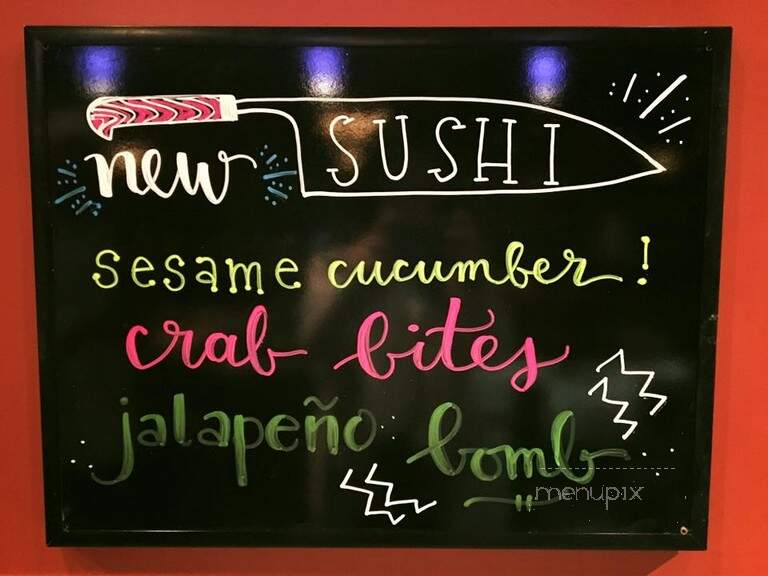 new SUSHI
sesame cucumber!
crab bites
jalapeño bomb
menupix